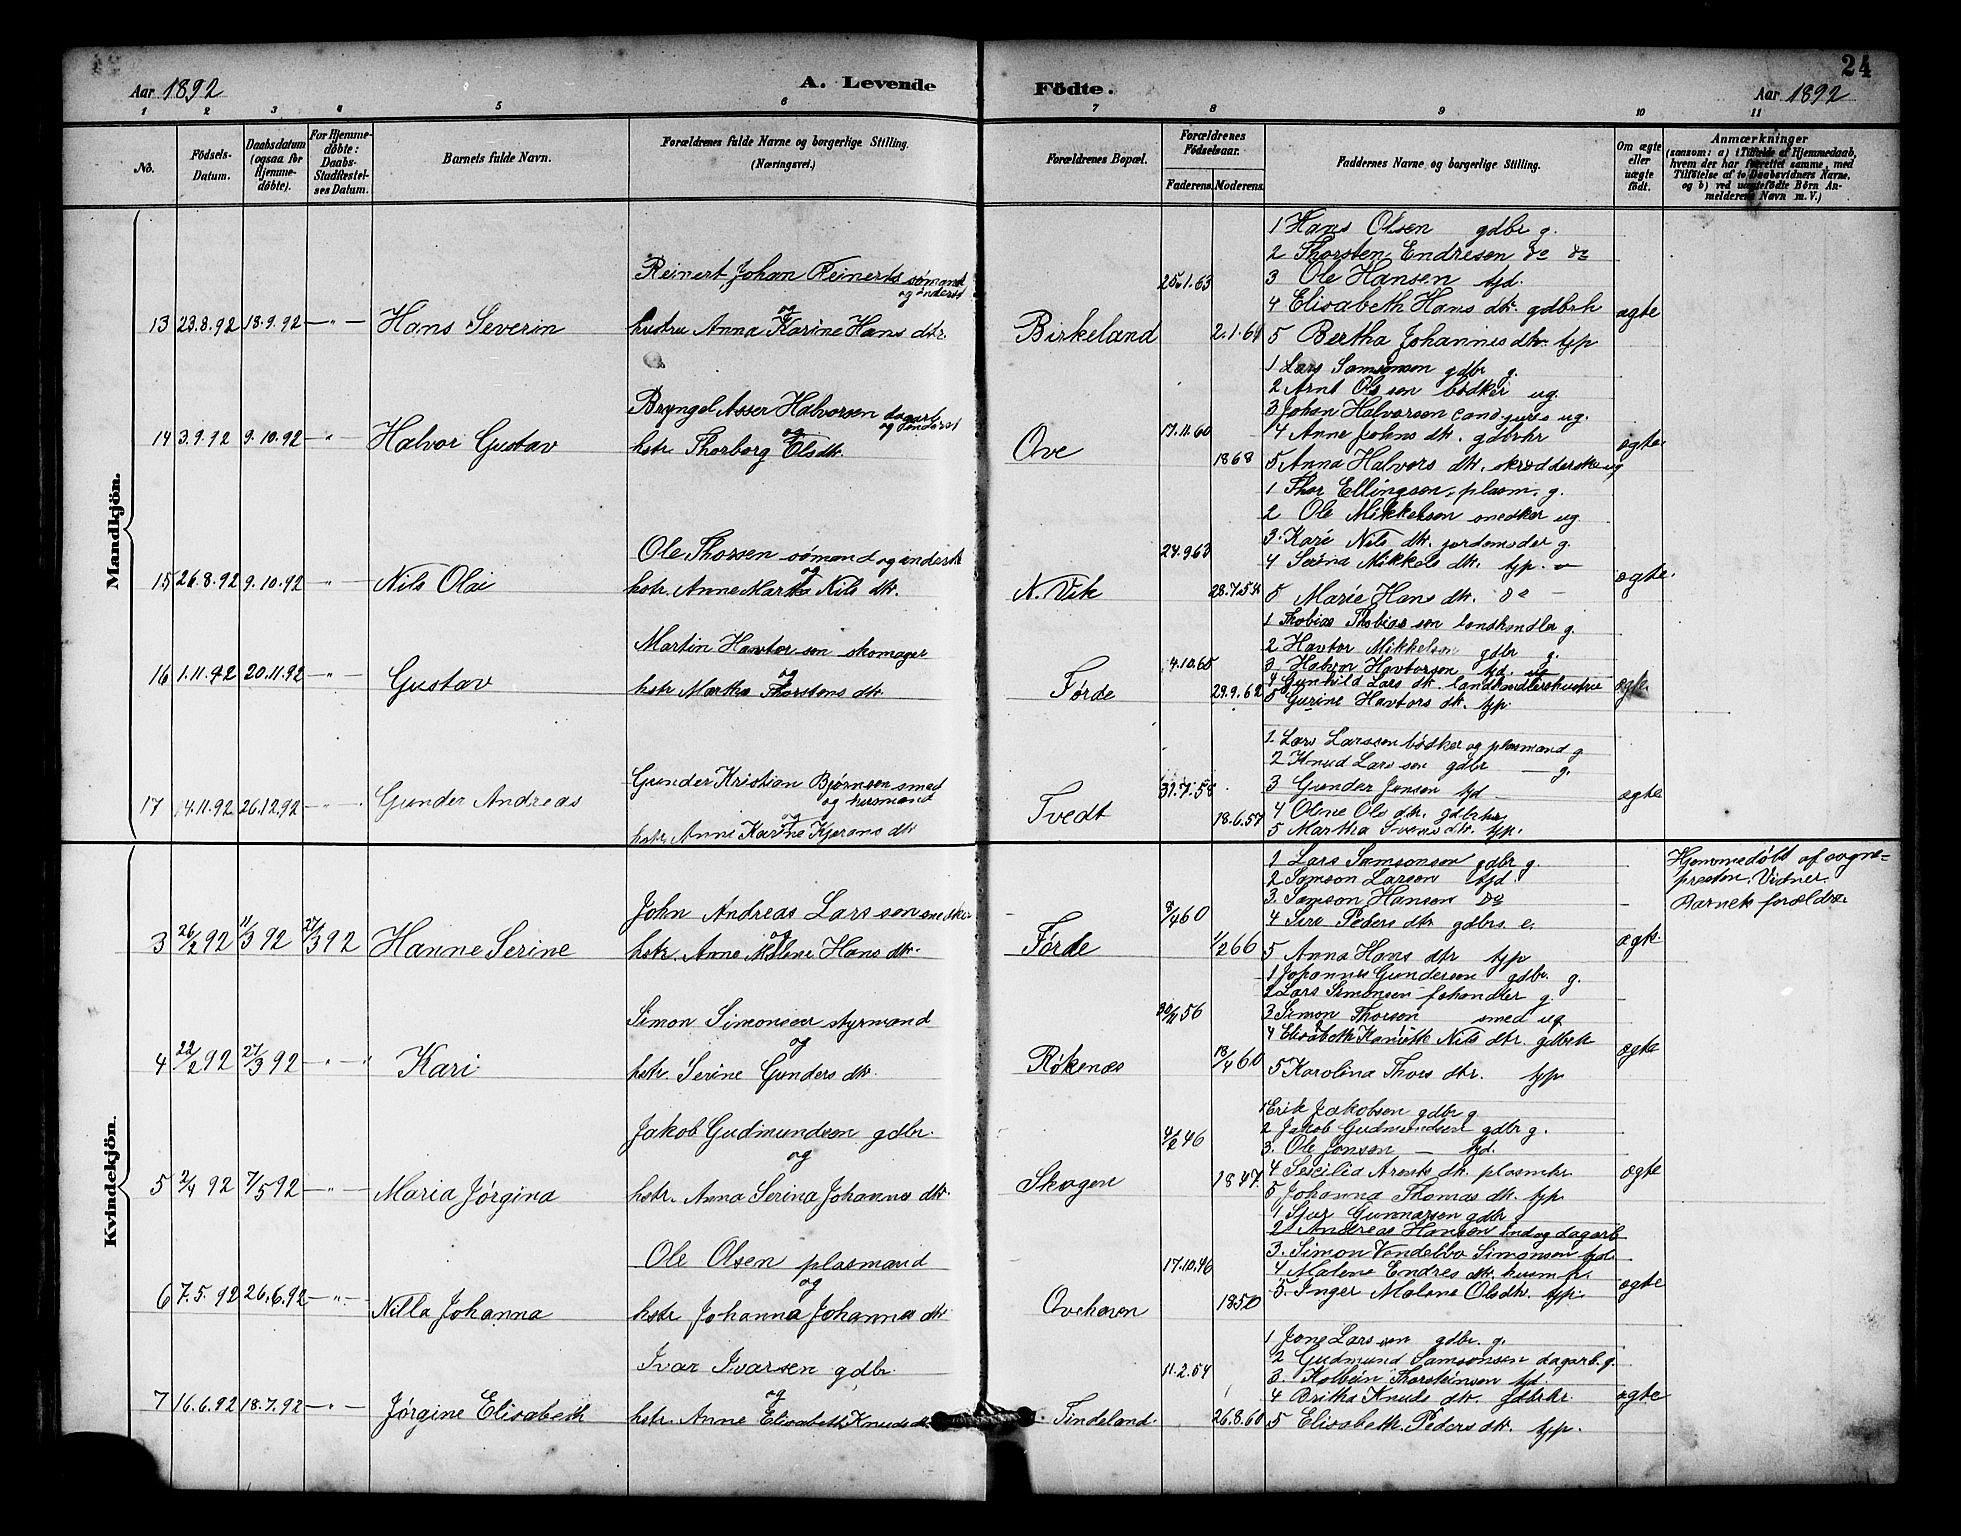 24
Aar 1892
A. Levende Födte.
Aar 1892
1 2 3 4 5 6 7 8 9 10 11
No.
Födsels-Datum.
Daabsdatum (ogsaa for Hjemme-döbte).
For Hjemme-döbte: Daabs-Stadfæstel-ses Datum.
Barnets fulde Navn.
Forældrenes fulde Navne og borgerlige Stilling. (Næringsvei.)
Forældrenes Bopæl.
Forældrenes Födselsaar.
Faderens. Moderens.
Faddernes Navne og borgerlige Stilling.
Om ægte eller uægte födt.
Anmærkninger
(saasom: a) i Tilfælde af Hjemmedaab, hvem der har forrettet samme, med Tilföielse af to Daabsvidners Navne, og b) ved uægtefödte Börn An-melderens Navn m. V.)
Mandkjön.
13 23.8.92 18.9.92 — " — Hans Severin
Reinert Johan Reinerts sømand og inderst
og
hustru Anna Karine Hans dtr.
Birkeland
25.1.63
2.1.64
1 Hans Olsen gdbr g.
2 Thorsten Endresen do do
3 Ole Hansen tjd.
4 Elisabeth Hans dtr. gdbrh
5 Bertha Johannis dtr. tjp
ægte
14 3.9.92 9.10.92 — " — Halvor Gustav
Bryngel Asser Halvorsen dagarb. og inderst
og
hstr. Thorborg Ols dtr.
Ove
17.11.60
1868
1 Lars Samsonsen gdbr g.
2 Arnt Olssen bødker ug.
3 Johan Halvorsen cand. juris ug.
4 Anne Johns dtr. gdbrhr
5 Anna Halvors dtr. skrædderske ug
ægte
15 26.8.92 9.10.92 — " — Nils Olai
Ole Thorsen sømand og inderst
og
hstr. Anne Martha Nils dtr.
N. Vik
24.9.63
28.7.54
1 Thor Ellingsen plasm. g.
2 Ole Mikkelsen snedker ug
3. Kari Nils dtr. jordemoder g.
4 Serina Mikkels dtr. tjp. —
5 Marie Hans dtr. do —
ægte.
16 1.11.92 20.11.92 — " — Gustav
Martin Havtorsen skomager
og
hstr Martha Thorstens dtr
Førde
4.10.65
29.9.62
1 Thobias Thobiassen landhandler g.
2 Havtor Mikkelsen gdbr g.
3. Halvor Havtorsen tjd. ug
4 Gunhild Lars dtr. landhandlershustru
5 Gurine Havtors dtr. tjp.
ægte.
17 14.11.92 26.12.92 — " — Gunder Andreas
Gunder Kristian Bjørnsen smed og husmand
og
hstr. Anne Karine Kjerans dtr
Tvedt
31.7.58
18.6.57
1. Lars Larssen bødker og plasmand g
2 Knud Larssen gdbr — g.
3 Gunder Jonsen tjd —
4 Oline Ols dtr. gdbrhr.
5 Martha Svens dtr. tjp.
ægte
Kvindekjön.
3 26/2 92 11/3 92 27/3 92 Hanne Serine
John Andreas Larssen snedker
og
hstr. Anne Malene Hans dtr.
Førde
8/4 60
1/2 66
1 Lars Samsonsen gdbr g.
2 Samson Larsen tjd.
3. Samson Hansen do
4 Siri Peders dtr gdbrs e.
5 Anna Hans dtr tjp
ægte
Hjemmedøbt af sogne-
præsten. Vidner
Barnets forældre
4 22/2 92 27/3 92 — " — " Kari
Simon Simonsen styrmand
og
hstr. Serine Gunders dtr.
Røkenæs
30/11 56
18/4 60
1 Johannes Gundersen gdbr. g.
2 Lars Simonsen fehandler g.
3 Simon Thorsen smed ug
4 Elisabeth Nils dtr. gdbrh
5 Karolina Thors dtr. tjp
ægte
5 2/4 92 7/5 92 — " — Maria Jørgina
Jakob Gudmundsen gdbr.
og
hstr. Anna Serina Johannes dtr.
Skogen
4/2 46
1847.
1 Erik Jakobsen gdbr g
2 Jakob Gudmundsen gdbr g.
3. Ole Jonsen — tjd.
4 Sescilia Arents dtr. plasmhr
5 Johanna Thomas dtr. tjp
ægte
6 7.5.92 26.6.92 — " — Nilla Johanna
Ole Olsen plasmand
og
hstr Johanna Johanna dtr
Ovehaven
17.10.46
1850
1 Sjur Gunnarsen gdbr g
2 Andreas Hansen ind og dagarb
3. Simon Vendelbo Simonsen tjd
4 Malene Endres dtr. husm.k.
5. Inger Malene Ols dtr. tjp.
ægte
7 16.6.92 18.7.92 — " — Jørgine Elisabeth
Ivar Ivarsen gdbr
og
hstr. Anne Elisabeth Knuds dtr
Tindeland.
11.2.54
26.8.60
1 Jone Larssen gdbr. g.
2 Gudmund Samsonsen dagarb. g.
3. Kolbein Thorsteinsen tjd.
4 Britha Knuds dtr. gdbrhr.
5 Elisabeth Peders dtr. tjp.
ægte